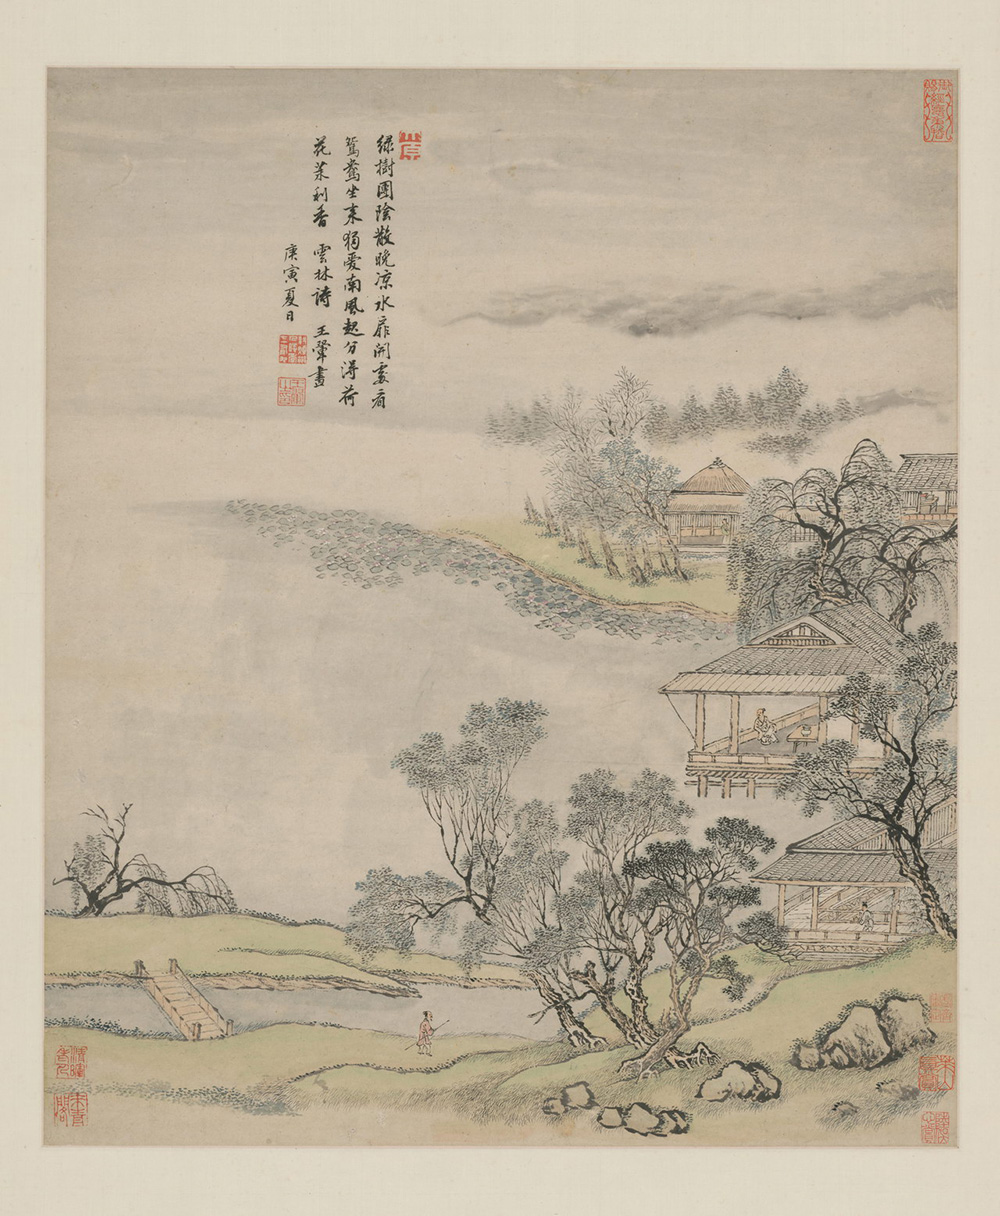 綠樹團陰散晚凉水扉開處看
鴛鴦坐來獨愛南風起分得荷
花茉利香 雲林詩 王翬畫
庚寅夏日